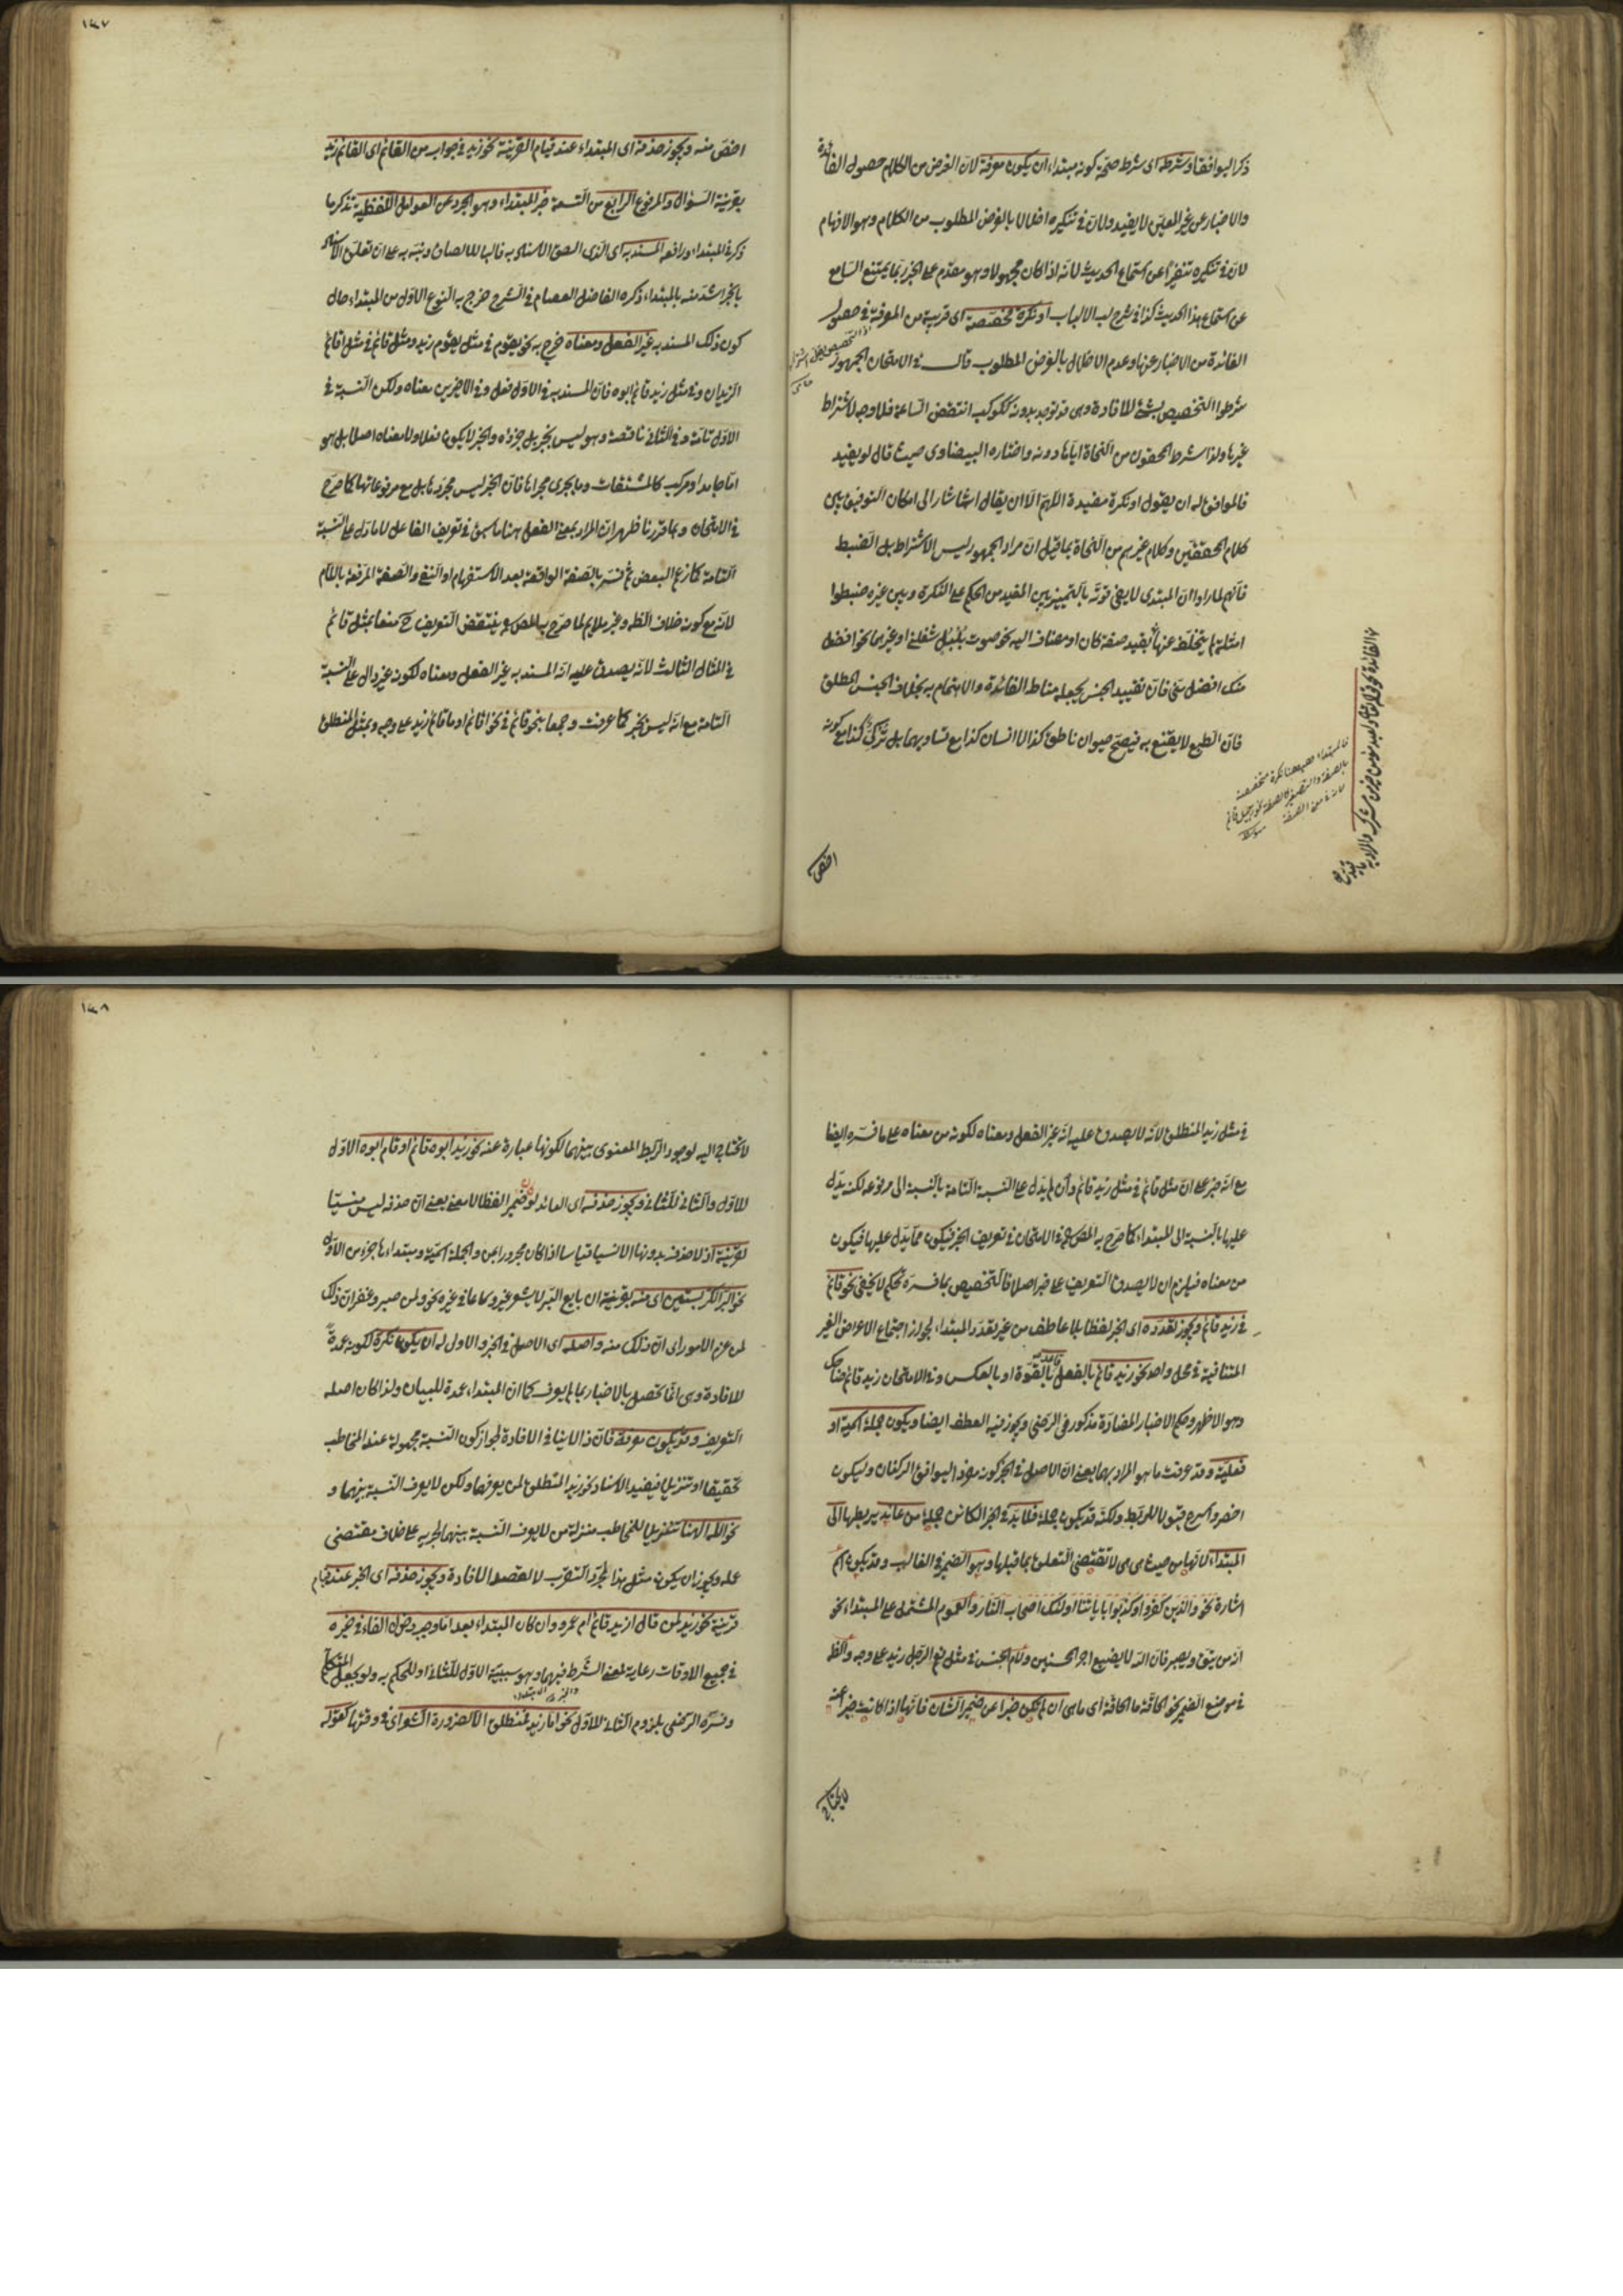 ذكر البوافقا وشرطه اى شرط صحة كونه مبتداء ان يكون معرفة لان الغرض من الكلام حصول الفائدة
والاخبار عن غير المعين لا يفيد ولان فى تنكيره اخلالا بالغرض المطلوب من الكلام وهو الافهام
لان فى تنكيره تنفيرا عن استماع الحديث لانه اذا كان مجهولا وهو مقدم على الخبر ربما يمتنع السامع
عن استماع هذا الحديث كذا فى شرح لب الالباب او نكرة مخصصة اى قريبة من المعرفة فى حصول
الفائدة من الاخبار عنها وعدم الاخلال بالغرض المطلوب قال فى الامتحان الجمهور
شرطوا التخصيص بشئ للافادة وهى قد توجد بدونه ككوكب انقض الساعة فلا وجه لاشتراط
غيرها ولذا شرط المحققون من النحاة اياها دونه واختاره البيضاوى حيث قال لو يفيد
فالموافق له ان يقول او نكرة مفيدة اللهم الا ان يقال اشار الى امكان التوفيق بين
كلام المحققين وكلام غيرهم من النحاة بما قيل ان مراد الجمهور ليس الاشتراط بل الضبط
فانهم لما راوا ان المبتدى لا يفى قوته بالتمييز بين المفيد من الحكم على النكرة وبين غيره ضبطوا
امثلة لم يتخلف عنها بقيد صفة كان او مضاف اليه نحو صوت بلبل شغلنى او غيرهما نحو افضل
منك افضل منى فان تقييد الجنس يجعله مناط الفائدة والاهتمام به بخلاف الجنس المطلق
فان الطبع لا يقنع به فيصح حيوان ناطق كذا لا انسان كذا مع تساويهما بل تركى كذا مع كونه
فالمبتداء ههنا نكرة مخصصة
اخص
اخص منه ويجوز حذفه اى المبتداء عند قيام القرينة نحو زيد فى جواب من القائم اى القائم زيد
بقرينة السؤال والمرفوع الرابع من التسعة خبر المبتداء وهو المجرد عن العوامل اللفظية تذكر ما
ذكر فى المبتداء ورافعه المسند به اى الذى الصق الاسناد به فالباء للالصاق ونبه به على ان تعلق الاسناد
بالخبر اشد منه بالمبتداء ذكره الفاضل العصام فى الشرح خرج به النوع الاول من المبتداء حال
كون ذلك المسند به غير الفعل ومعناه خرج به نحو يقوم فى مثل يقوم زيد ومثل قائم فى مثل اقائم
الزيدان وفى مثل زيد قائم ابوه فان المسند به فى الاول فعل وفى الاخيرين معناه ولكن النسبة فى
الاول تامة وفى الثانى ناقصة وهو ليس بخبر بل جزؤه والخبر لا يكون فعلا ولا معناه اصلا بل هو
اما جامد او مركب كالمشتقات وما يجرى مجراها فان الخبر ليس مجردها بل مع مرفوعاتها كما صرح
فى الامتحان وبما قررنا ظهر ان المراد بمعنى الفعل هنا ما سبق فى تعريف الفاعل لا ما دل على النسبة
التامة كما زعم البعض ثم فسر بالصفة الواقعة بعد الاستفهام او النفى والصفة المرفعة باللام
لانه مع كونه خلاف الظ وغير ملايم لما صرح به المص فى ينتقض التعريف ح منعا بمثل قائم
فى المثال الثالث لانه يصدق عليه انه المسند به غير الفعل ومعناه لكونه غير دال على النسبة
التامة مع انه ليس بخبر كما عرفت وجمعا بنحو قائم فى نحو اقائم او ما قائم زيد على وجه وبمثل المنطلق
١٤٧
فى مثل زيد المنطلق لانه لا يصدق عليه انه غير الفعل ومعناه لكونه من معناه على ما فسره ايضا
مع انه خبر على ان مثل قائم فى مثل زيد قائم وان لم يدل على النسبة التامة بالنسبة الى مرفوعه لكنه يدل
عليها بالنسبة الى المبتداء كما صرح به المص فى الامتحان فى تعريف الخبر فيكون مما يدل عليها فيكون
من معناه فيلزم ان لا يصدق التعريف على خبر اصلا فالتخصيص بما فسره تحكم لا يخفى نحو قائم
فى زيد قائم ويجوز تعدده اى الخبر لفظا بلا عاطف من غير تعدد المبتداء لجواز اجتماع الاعراض الغير
المتنافية فى محل واحد نحو زيد قائم بالفعل قاعد بالقوة او بالعكس وفى الامتحان زيد قائم ضاحك
وهو الاظهر وحكم الاخبار المضادة مذكور فى الرضى ويجوز فيه العطف ايضا ويكون جملة اسمية او
فعلية وقد عرفت ما هو المراد بهما يعنى ان الاصل فى الخبر كونه مفردا ليوافق الركنان وليكون
اخصر واسرع قبولا للربط ولكنه قد يكون جملة فلا بد فى الخبر الكائن جملة من عائد يربطها الى
المبتداء لانها من حيث هى هى لا تقتضى التعلق بما قبلها وهو الضمير فى الغالب وقد يكون اسم
اشارة نحو والذين كفروا وكذبوا باياتنا اولئك اصحاب النار والعموم المشتمل على المبتداء نحو
انه من يتق ويصبر فان الله لا يضيع اجر المحسنين ولام الجنس فى مثل نعم الرجل زيد على وجه والظ
فى موضع الضمير نحو الحاقة ما الحاقة اى ما هى ان لم يكن خبرا عن ضمير الشان فانها اذا كانت خبرا عنه
لا يحتاج
لا يحتاج اليه لوجود الربط المعنوى بينهما لكونها عبارة عنه نحو زيد ابوه قائم او قام ابوه الاول
للاول والثانى للثانى ويجوز حذفه اى العائد لو ضمير الفظا لا معنى يعنى ان حذفه ليس منسيا
لقرينة اذ لا حذف بدونها الا نسيا قياسا اذا كان مجرورا بمن والجملة اسمية ومبتداءها جزء من الاول
نحو البر الكر بستين اى منه بقرينة ان بايع البر لا يسعر غيره وسماعا فى غيره نحو ولمن صبر وغفر ان ذلك
لمن عزم الامور اى ان ذلك منه واصله اى الاصل فى الخبر والاول له ان يكون نكرة لكونه عمدة
للافادة وهى انما تحصل بالاخبار بما لم يعرف كما ان المبتداء عمدة للبيان ولذا كان اصله
التعريف وقد يكون معرفة فان ذا لا ينافى الافادة لجواز كون النسبة مجهولة عند المخاطب
تحقيقا او تنزيلا فيفيد الاسناد نحو زيد المنطلق لمن يعرفهما ولكن لا يعرف النسبة بينهما و
نحو الله الهنا تنزيلا للمخاطب منزلة من لا يعرف النسبة بينهما لجريه على خلاف مقتضى
علمه ويجوز ان يكون مثل هذا لمجرد التقرب لا لقصد الافادة ويجوز حذفه اى الخبر عند قيام
قرينة نحو زيد لمن قال ازيد قائم ام عمرو وان كان المبتداء بعد اما وجب دخول الفاء فى خبره
فى جميع الاوقات رعاية لمعنى الشرط فيهما وهو سببية الاول للثانى او للحكم به ولو بجعل المتكلم
وفسره الرضى بلزوم الثانى للاول نحو اما زيد فمنطلق الا لضرورة الشعر اى فى وقتها كقوله
١٤٨